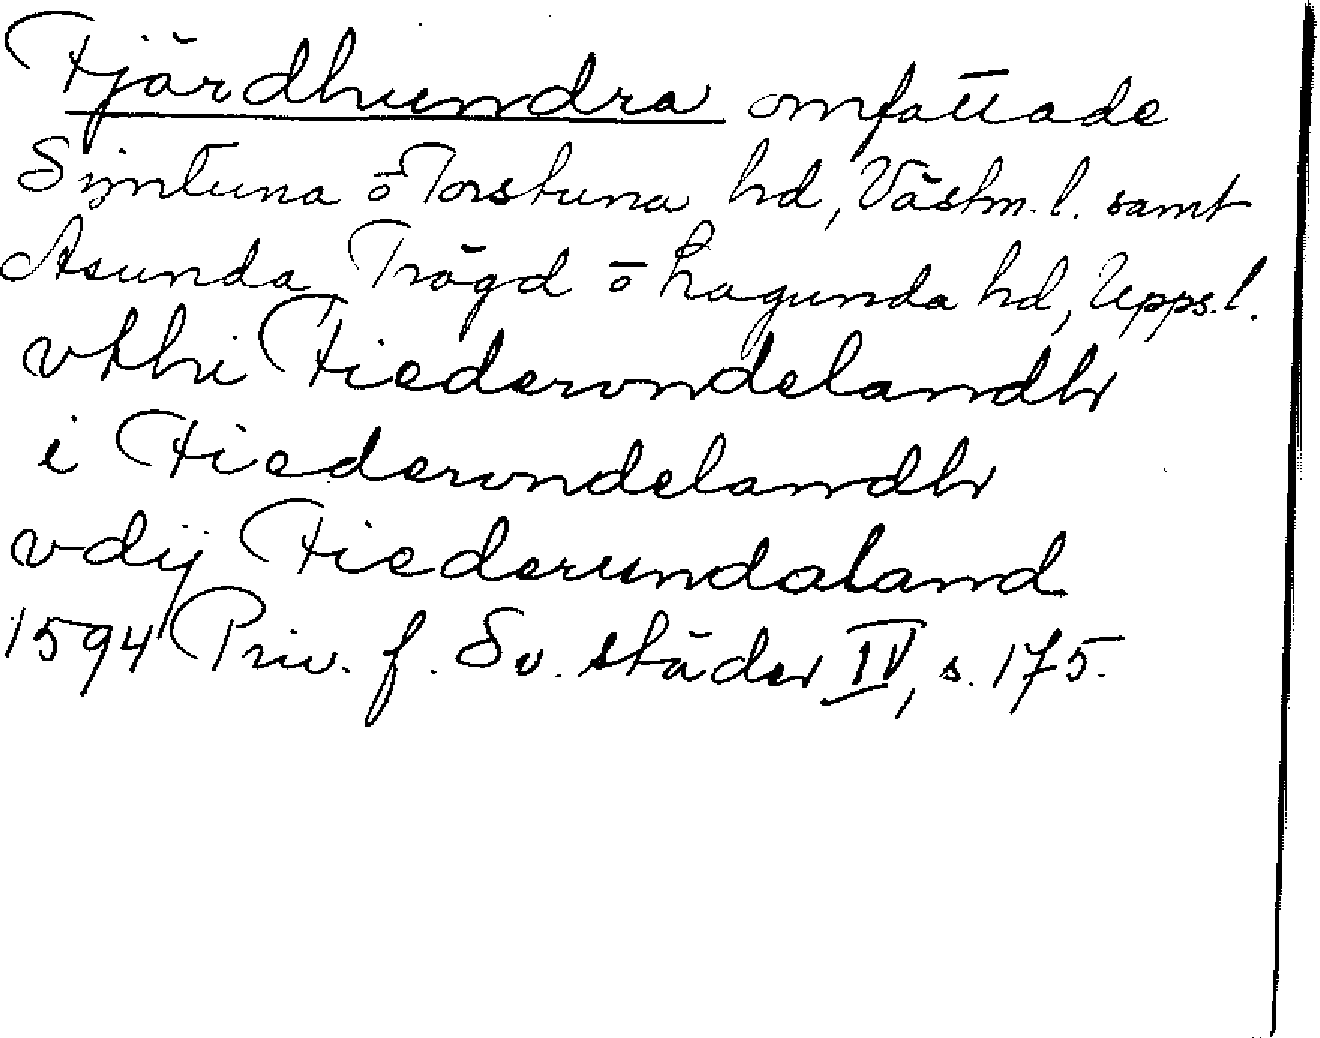 Fjärdhundra omfattade
Simtuna o Torstuna hd, Västm. l. samt
Asunda, Trögd o Lagunda hd, Upps. l.
vthi Fiedervndelandh
i Fiedervndelandh
vdij Fiederundaland
1594 Priv. f. Sv. städer IV, s. 175.